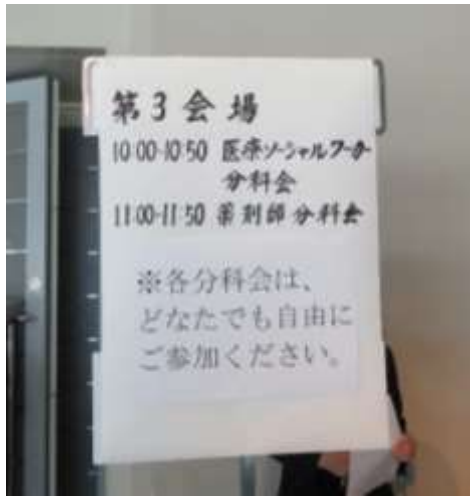 第3会場
10:00-10:50 医療ソーシャルワーカー
分科会
11:00-11:50 薬剤師分科会
※各分科会は、
どなたでも自由に
ご参加ください。